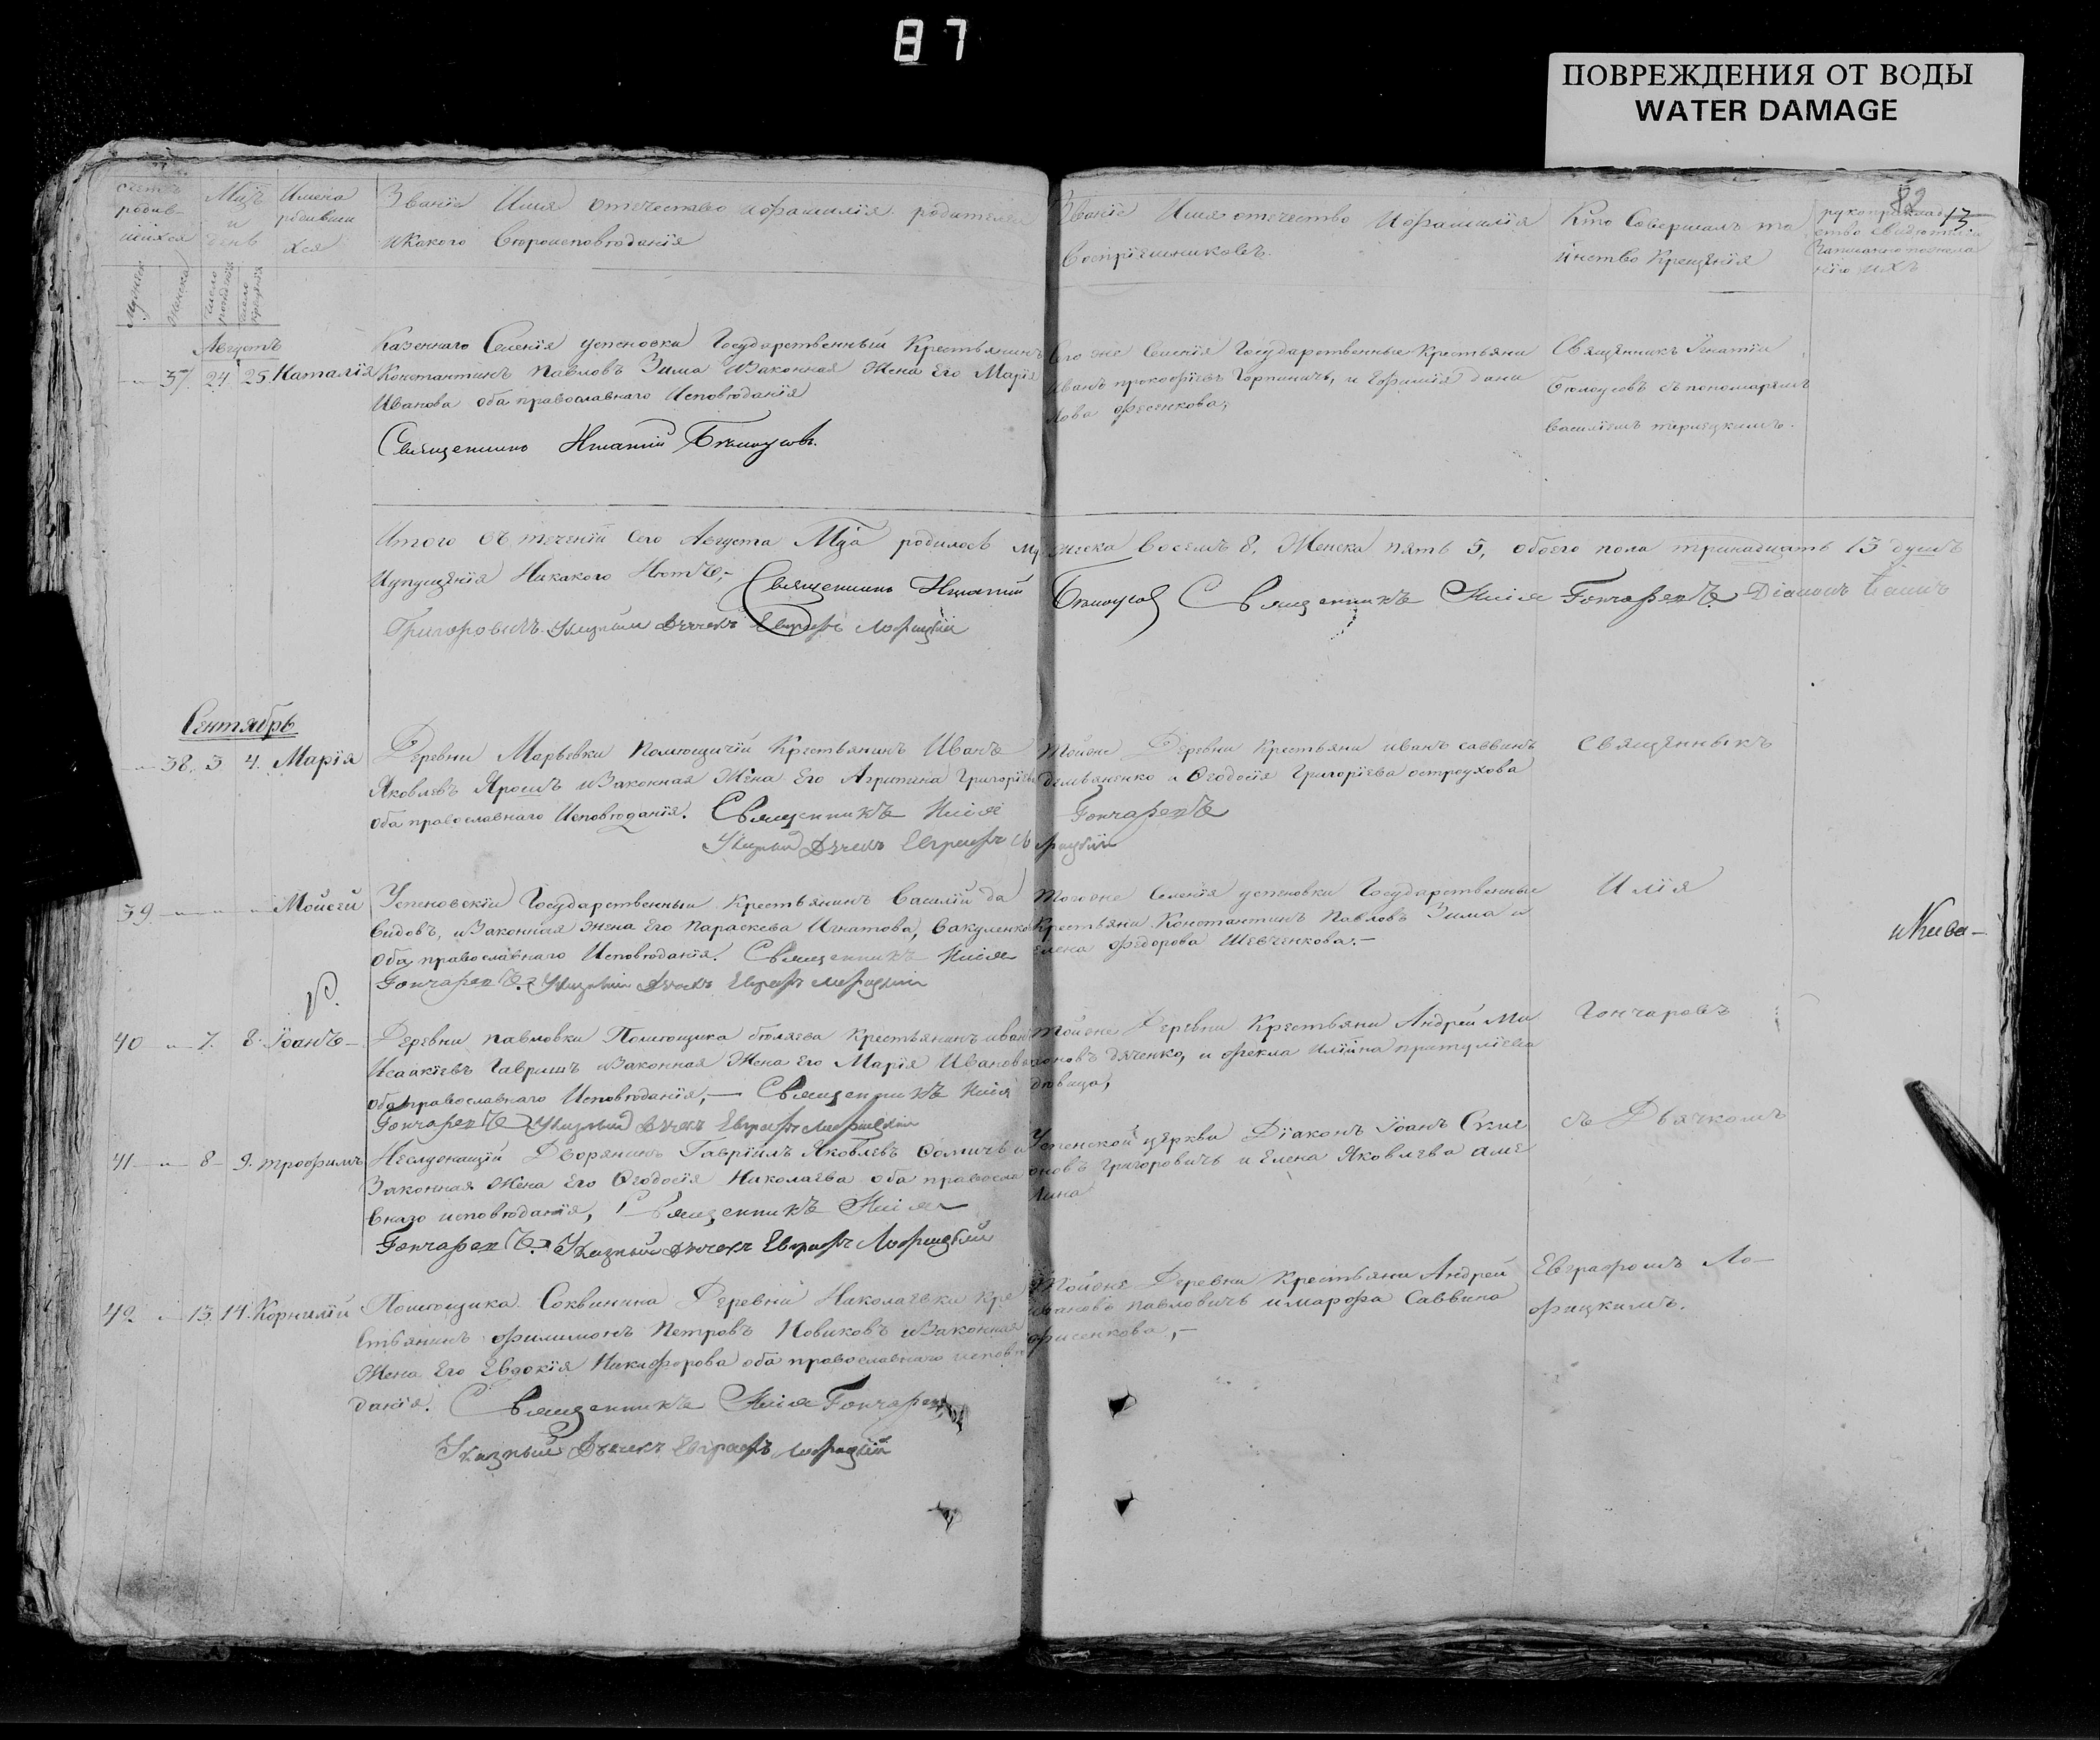 87
ПОВРЕЖДЕНИЯ ОТ ВОДЫ
WATER DAMAGE
82
13
счетъ родив-шихся
Мцъ и день
Имена родивши хся
Званіе Имя отечество иофамилія родителей
икакого Вѣроисповѣданія
Званіе Имя отечество Иофамилія
Воспріемниковъ.
Кто Совершалъ та
инство Крещенія
число рожденія
число крещенія
Августъ
37. 24. 25. Наталія
Казеннаго Селенія успеновки Государственный Крестьянинъ
Константинъ Павловъ Зима изаконная Жена Его Марія
Иванова оба православнаго Исповѣданія
Священникъ Игнатій Бѣлоусовъ.
Его же Селенія Государственные Крестьяни
иванъ прокофіевъ Горпиничь, и Ефимія Дани
лова фесенкова;
Священникъ Игнатій
Бѣлоусовъ съ пономаремъ
Василіемъ
Итого въ теченіи сего Августа Мца родилось мужеска восемъ 8. Женска пять 5, обоего пола тринадцать 13 душъ
Ипущенія Никакого Нѣтъ,- Священникъ Игнатій Бѣлоусовъ Священникъ Илія Гончаревъ. Діаконъ Іоанъ
Григоровичь. Указный Дьячекъ Евграфъ Лофицкій
Сентябрь
38. 3. 4. Марія
Деревни Марьевки Помещичій Крестьянинъ Иванъ
Яковлевъ Ярошъ изаконная Жена Его Агрипена Григоріева
оба православнаго Исповѣданія. Священникъ Илія Гончаревъ
Указный Дьячекъ Евграфъ Лофицкій
тойже Деревни Крестьяни иванъ саввинъ
демьяненко и Ѳеодосія Григоріева остроухова
Священникъ
39. Мойсей
Успеновскій Государственный Крестьянинъ Василій да
видовъ, изаконная жена Его Параскева Игнатова, Вакуленко
Оба православнаго Исповѣданія. Священникъ Илія
Гончаревъ. Указный Дьячекъ Евграфъ Лофицкій
тогоже Селенія успеновки Государственные
Крестьяни Константинъ Павловъ Зима и
Елена федорова Шевченкова.-
Илія
40 7. 8. Іоанъ
Деревни павловки Помещика бѣляева Крестьянинъ иванъ
Исаакіевъ Гавришъ изаконная Жена Его Марія Иванова
оба православнаго Исповѣданія,- Священникъ Илія
Гончаревъ Указный Дьячекъ Евграфъ Лофицкій
тойже Деревни Крестьяни Андрей Ми
роновъ дяченко, и фекла Илійна
Гончаровъ
41 8 9. трофимъ
Неслужащій Дворянинъ Гавріилъ Яковлевъ Ѳомичъ и
Законная Жена Его Ѳеодосія Николаева оба правосла
внаго исповѣданія, Священникъ Илія
Гончаревъ. Указный Дьячекъ Евграфъ Лофицкій
Успенской церкви Діаконъ Іоанъ Симе
оновъ Григоровичь и Елена Яковлева аме
лина
съ Дьячкомъ
42 13. 14. Корнилій
Помещика Соквинина Деревни Николаевки кре
стьянинъ филимонъ Петровъ Новиковъ изаконная
Жена Его Евдокія Никифорова оба православнаго исповѣ
данія. Священникъ Илія Гончаревъ
Указный Дьячекъ Евграфъ Лофицкій
тойже Деревни Крестьяни Андрей
ивановъ павловичь имарфа Саввина
фисенкова,-
Евграфомъ Ло-
фицкимъ.